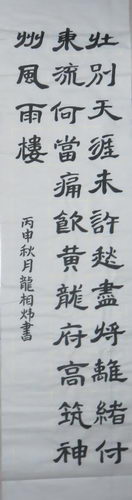 壯別天涯未許愁盡將離緒付
東流何當痛飲黃龍府高筑神
州風雨樓
丙申秋月龍相炜書